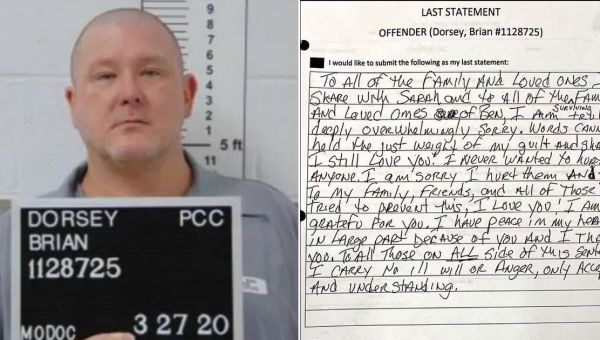 9
8
7
6
5 ft
5
DORSEY PCC
BRIAN
1128725
MODOC 3 27 20
LAST STATEMENT
OFFENDER (Dorsey, Brian #1128725)
I would like to submit the following as my last statement:
To All of the Family And Loved ones
Share with Sarah and to All of the Fam
surviving
And Loved ones of Ben, I Am
deeply overwhelmingly sorry. Words cann
hold the just weight of my guilt and sha
I still love you. I never wanted to hur
Anyone. I am sorry I hurt them And
To my family, friends, and all of those
tried to prevent this, I love you! I Am
grateful for you. I have peace in my hea
in large part because of you and I th
you. To All those on ALL side of this sent
I carry no ill will or Anger, only Acc
And understanding.